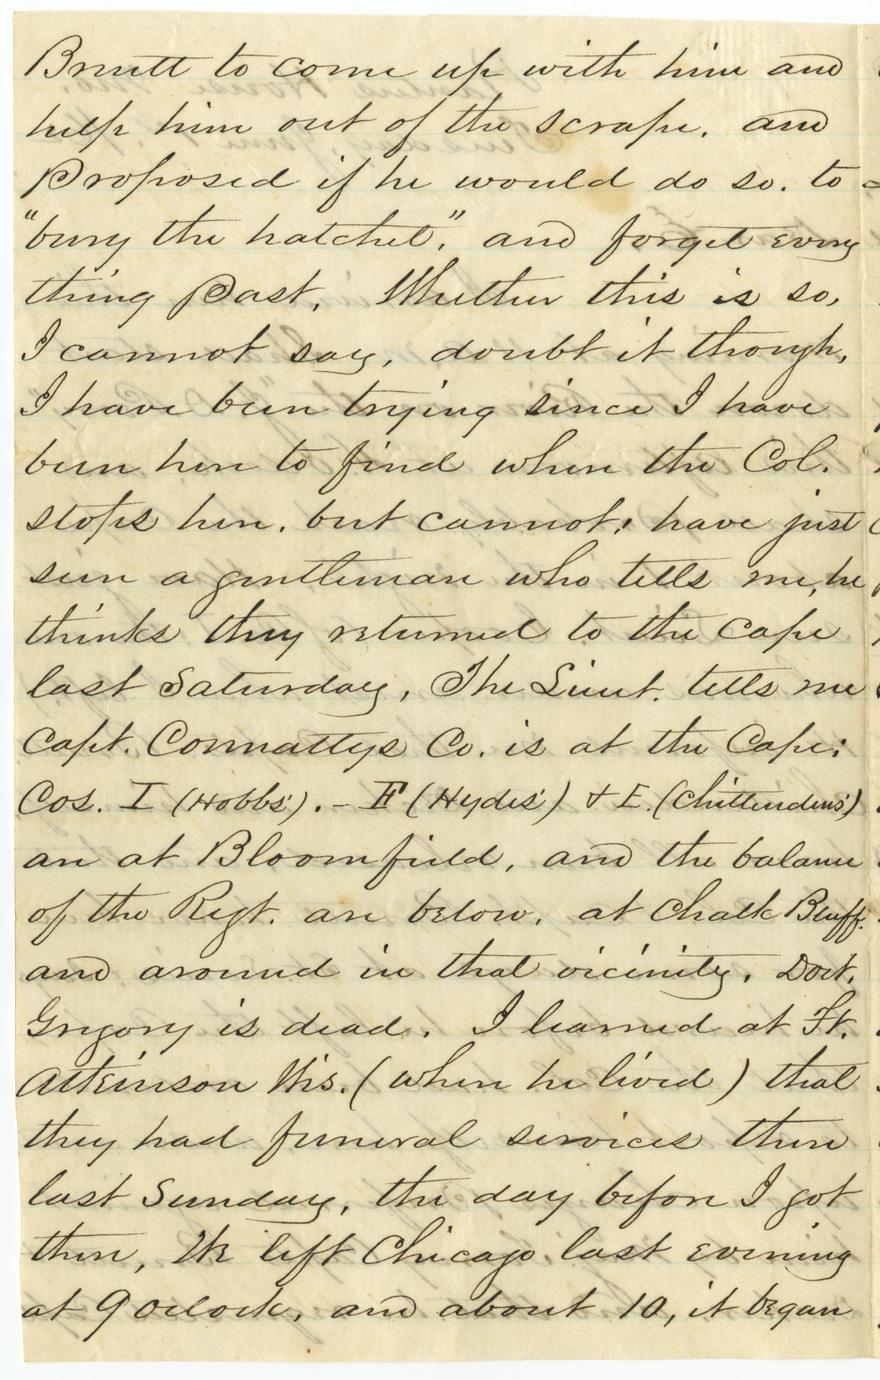 Bruett to come up with him and
help him out of the scrape. and
Proposed if he would do so. to
"bury the hatchet", and forget every
thing Past. Whether this is so,
I cannot say, doubt it though.
I have been trying since I have
been here to find where the Col.
stops here. but cannot; have just
seen a gentleman who tells me, he
thinks they returned to the Cape
last Saturday, The Lieut. tells me
Capt. Connattys Co. is at the Cape;
Cos. I (Hobbs'). - F (Hydes') & E. (Chittendens')
are at Bloomfield, and the balance
of the Regt. are below. at Chalk Bluff.
and around in that vicinity. Doct.
Gregory is dead. I learned at Ft.
Atkinson Wis. (where he lived) that
they had funeral services there
last Sunday, the day before I got
there, We left Chicago last evening
at 9 oclock, and about 10, it began